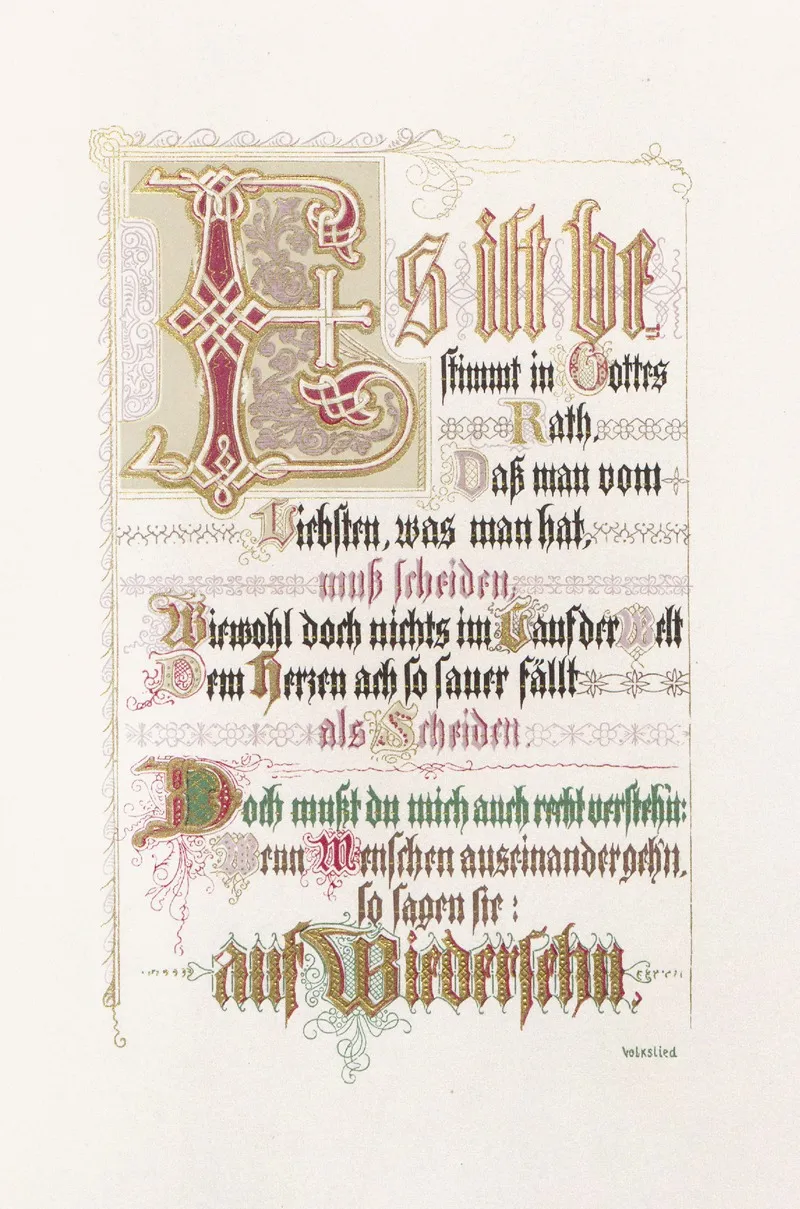 Es ist be⸗
stimmt in Gottes
Rath,
Daß man vom
Liebsten, was man hat,
muß scheiden,
Wiewohl doch nichts im Lauf der Welt
Dem Herzen ach so sauer fällt
als Scheiden.
Doch mußt du mich auch recht verstehn:
Wenn Menschen auseinandergehn,
so sagen sie:
auf Wiedersehn.
Volkslied